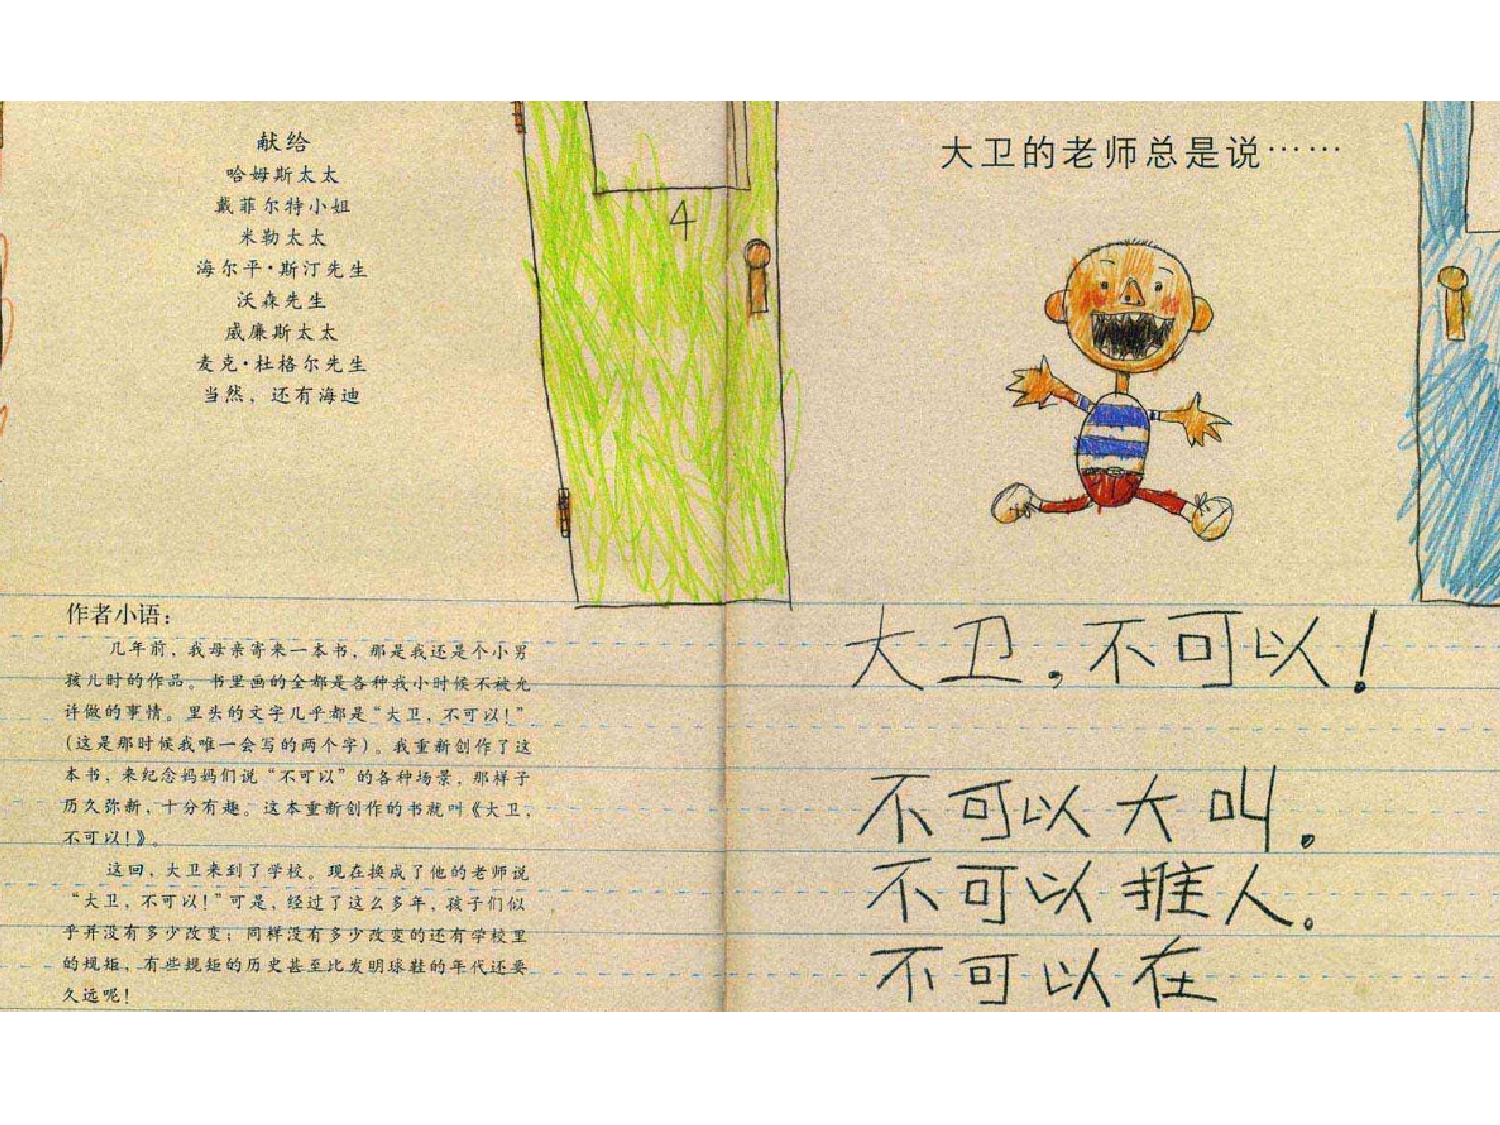 献给
哈姆斯太太
戴菲尔特小姐
米勒太太
海尔平·斯汀先生
沃森先生
威廉斯太太
麦克·杜格尔先生
当然，还有海迪
4
作者小语：
几年前，我母亲寄来一本书，那是我还是个小男
孩儿时的作品。书里画的全都是各种我小时候不被允
许做的事情。里头的文字几乎都是“大卫，不可以！”
（这是那时候我唯一会写的两个字）。我重新创作了这
本书，来纪念妈妈们说“不可以”的各种场景，那样子
历久弥新，十分有趣。这本重新创作的书就叫《大卫，
不可以！》。
这回，大卫来到了学校。现在换成了他的老师说
“大卫，不可以！”可是，经过了这么多年，孩子们似
乎并没有多少改变；同样没有多少改变的还有学校里
的规矩，有些规矩的历史甚至比发明球鞋的年代还要
久远呢！
大卫的老师总是说……
大卫，不可以！
不可以大叫。
不可以推人。
不可以在